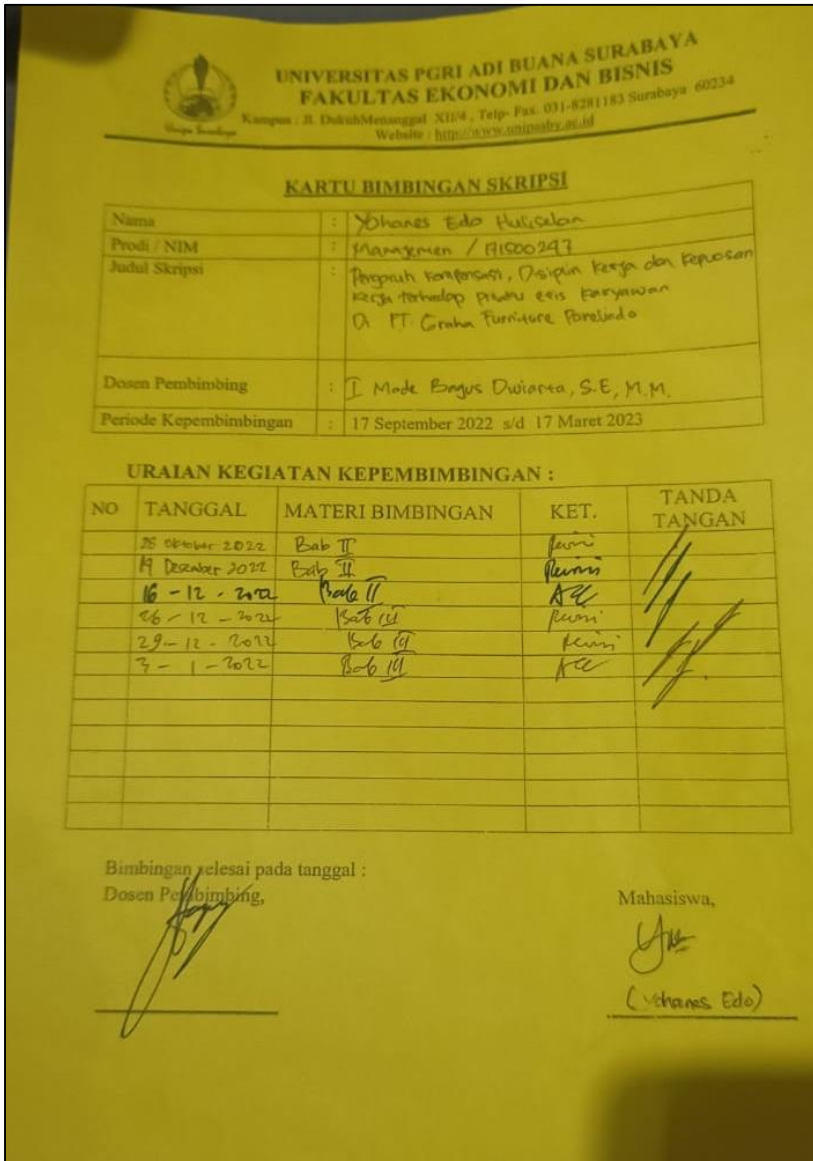 UNIVERSITAS PGRI ADI BUANA SURABAYA
FAKULTAS EKONOMI DAN BISNIS
Kampus : Jl. DukuhMenanggal XII/4 , Telp- Fax. 031-8281183 Surabaya 60234
Website : http://www.unipasby.ac.id
KARTU BIMBINGAN SKRIPSI
Nama : Yohanes Edo Huliselan
Prodi / NIM : Manajemen / 171500297
Judul Skripsi : Pengaruh kompensasi, Disiplin kerja dan kepuasan
kerja terhadap karyawan
Di PT. Graha Furniture Porelindo
Dosen Pembimbing : I Made Bagus Dwiarta, S.E, M.M.
Periode Kepembimbingan : 17 September 2022 s/d 17 Maret 2023
URAIAN KEGIATAN KEPEMBIMBINGAN :
NO TANGGAL MATERI BIMBINGAN KET. TANDA TANGAN
28 Oktober 2022 Bab II Revisi
Desember 2022 Bab II Revisi
16 - 12 - 2022 Bab II ACC
26 - 12 - 2022 Bab III Revisi
29 - 12 - 2022 Bab III Revisi
3 - 1 - 2022 Bab III ACC
Bimbingan selesai pada tanggal :
Dosen Pembimbing,
Mahasiswa,
(Yohanes Edo)